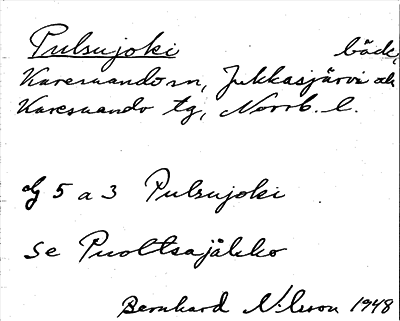 Pulsujoki bäck,
Karesuando sn, Jukkasjärvi och
Karesuando tg, Norrb. l.
5 a 3 Pulsujoki
Se Puoltsajåkko
Bernhard Nilsson 1948